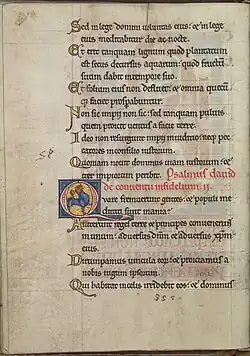 Sed in lege domini uoluntas eius: et in lege
eius meditabitur die ac nocte.
Et erit tanquam lignum quod plantatum
est secus decursus aquarum: quod fructū
suum dabit in tempore suo.
Et folium eius non defluet: et omnia quecūq;
faciet prosperabuntur.
Non sic impii non sic: sed tanquam puluis
quem proicit uentus a facie terre.
Ideo non resurgunt impii in iudicio: neq; pec
catores in consilio iustorum.
Quoniam nouit dominus uiam iustorum: et
iter impiorum peribit. Psalmus dauid
de conuentu infidelium ij
Quare fremuerunt gentes: et populi me
ditati sunt inania:
Astiterunt reges terre et principes conuenerūt
in unum: aduersus dn̄m et aduersus xp̄m
eius.
Dirumpamus uincula eorum: et proiciamus a
nobis iugum ipsorum.
Qui habitat in celis irridebit eos: et dominus